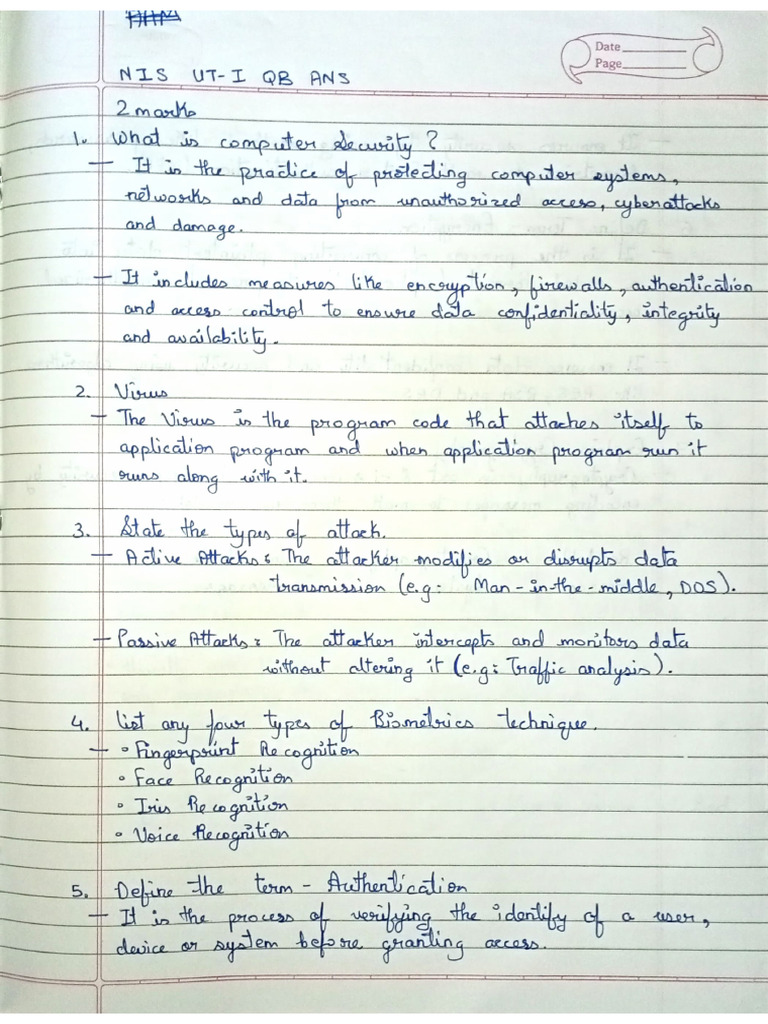 Date
Page
NIS UT-I QB ANS
2 marks
1. What is computer Security?
- It is the practice of protecting computer systems,
networks and data from unauthorized access, cyberattacks
and damage.
- It includes measures like encryption, firewalls, authentication
and access control to ensure data confidentiality, integrity
and availability.
2. Virus
- The Virus is the program code that attaches itself to
application program and when application program run it
runs along with it.
3. State the types of attack.
- Active Attacks: The attacker modifies or disrupts data
transmission (e.g: Man-in-the-middle, DOS).
- Passive Attacks: The attacker intercepts and monitors data
without altering it (e.g: Traffic analysis).
4. List any four types of Biometrics technique.
- • Fingerprint Recognition
• Face Recognition
• Iris Recognition
• Voice Recognition
5. Define the term - Authentication
- It is the process of verifying the identify of a user,
device or system before granting access.